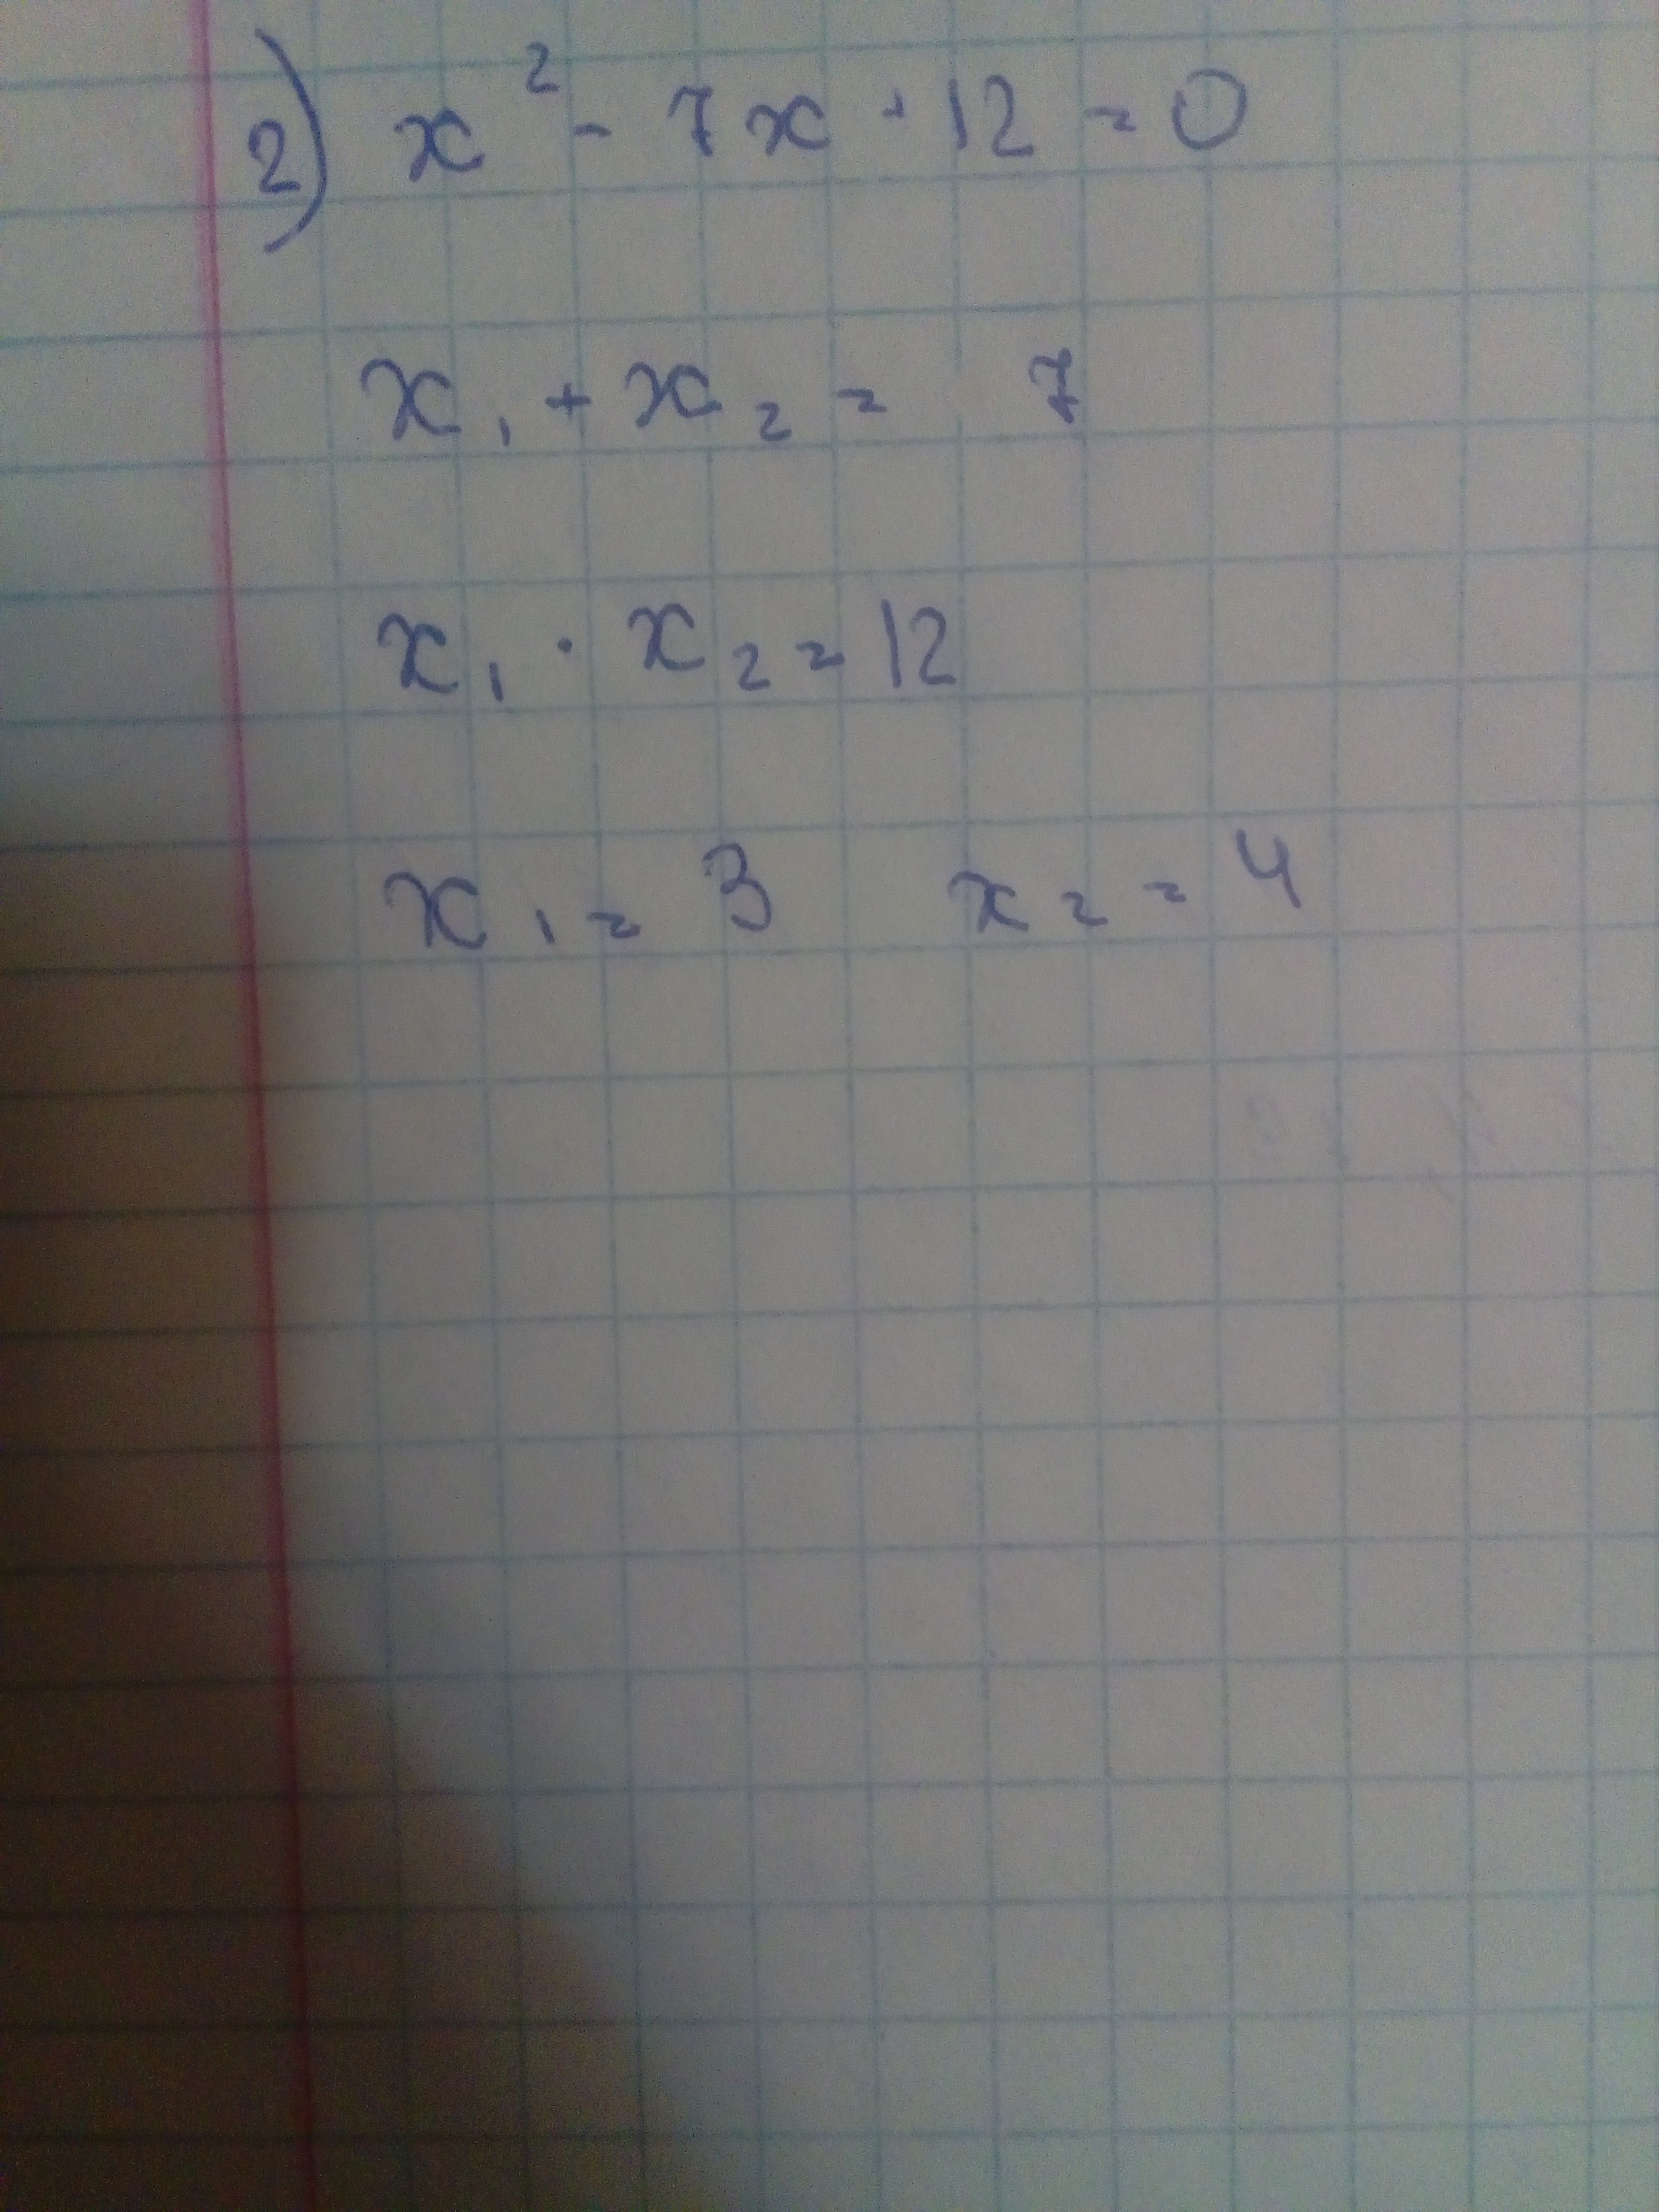 2) x² - 7x + 12 = 0
x₁ + x₂ = 7
x₁ · x₂ = 12
x₁ = 3 x₂ = 4